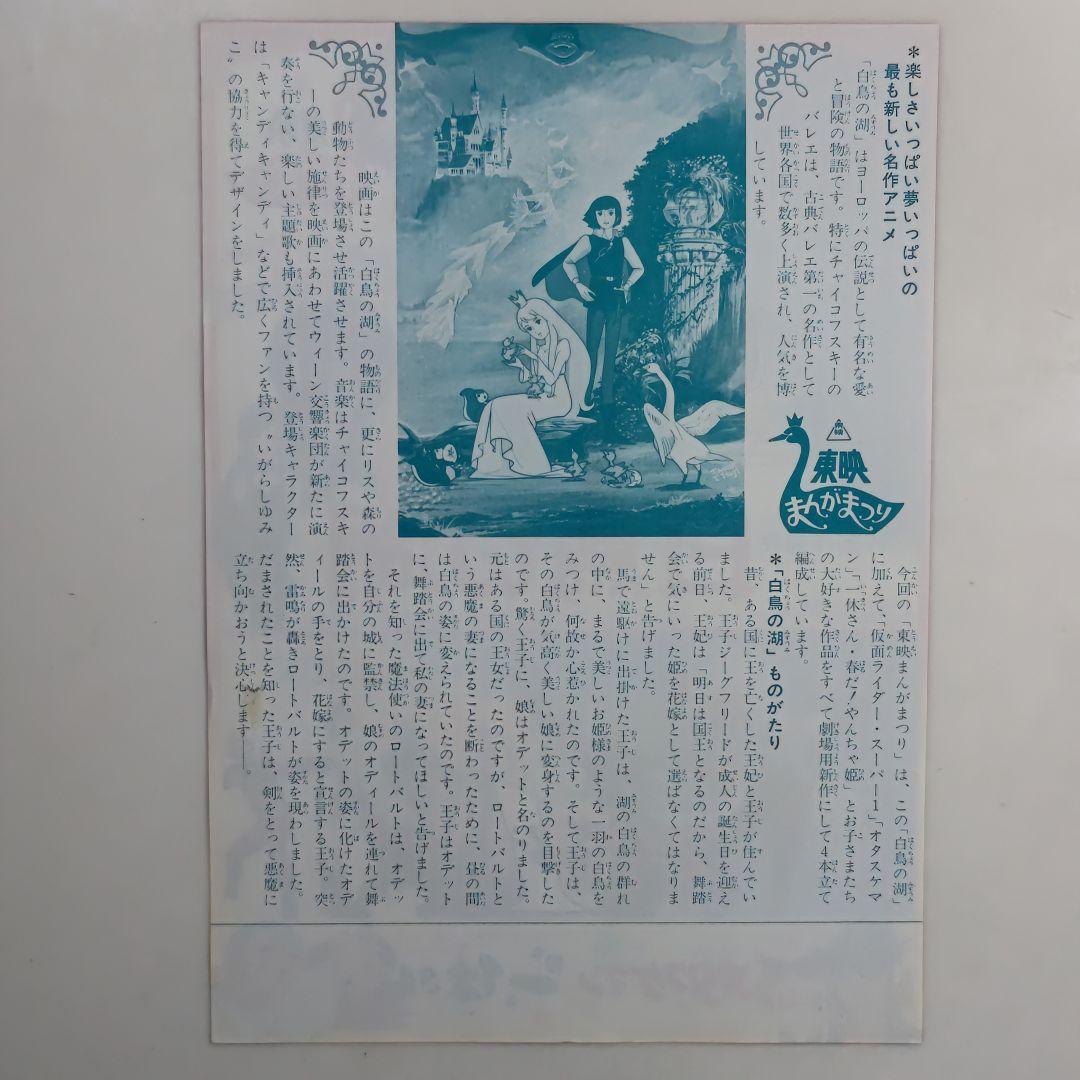 ＊楽しさいっぱい夢いっぱいの
最も新しい名作アニメ
「白鳥の湖」はヨーロッパの伝説として有名な愛
と冒険の物語です。特にチャイコフスキーの
バレエは、古典バレエ第一の名作として
世界各国で数多く上演され、人気を博
しています。
映画はこの「白鳥の湖」の物語に、更にリスや森の
動物たちを登場させ活躍させます。音楽はチャイコフスキ
ーの美しい施律を映画にあわせてウィーン交響楽団が新たに演
奏を行ない、楽しい主題歌も挿入されています。登場キャラクター
は「キャンディキャンディ」などで広くファンを持つ〝いがらしゆみ
こ〟の協力を得てデザインをしました。
東映
東映
まんがまつり
今回の「東映まんがまつり」は、この「白鳥の湖」
に加えて、「仮面ライダー・スーパー1」「オタスケマ
ン」「一休さん・春だ！やんちゃ姫」とお子さまたち
の大好きな作品をすべて劇場用新作にして4本立て
編成しています。
＊「白鳥の湖」ものがたり
昔、ある国に王を亡くした王妃と王子が住んでい
ました。王子ジークフリードが成人の誕生日を迎え
る前日、王妃は「明日は国王となるのだから、舞踏
会で気にいった姫を花嫁として選ばなくてはなりま
せん」と告げました。
馬で遠駆けに出掛けた王子は、湖の白鳥の群れ
の中に、まるで美しいお姫様のような一羽の白鳥を
みつけ、何故か心惹かれたのです。そして王子は、
その白鳥が気高く美しい娘に変身するのを目撃した
のです。驚く王子に、娘はオデットと名のりました。
元はある国の王女だったのですが、ロートバルトと
いう悪魔の妻になることを断わったために、昼の間
は白鳥の姿に変えられていたのです。王子はオデット
に、舞踏会に出て私の妻になってほしいと告げました。
それを知った魔法使いのロートバルトは、オデッ
トを自分の城に監禁し、娘のオディールを連れて舞
踏会に出かけたのです。オデットの姿に化けたオデ
ィールの手をとり、花嫁にすると宣言する王子。突
然、雷鳴が轟きロートバルトが姿を現わしました。
だまされたことを知った王子は、剣をとって悪魔に
立ち向かおうと決心します――。